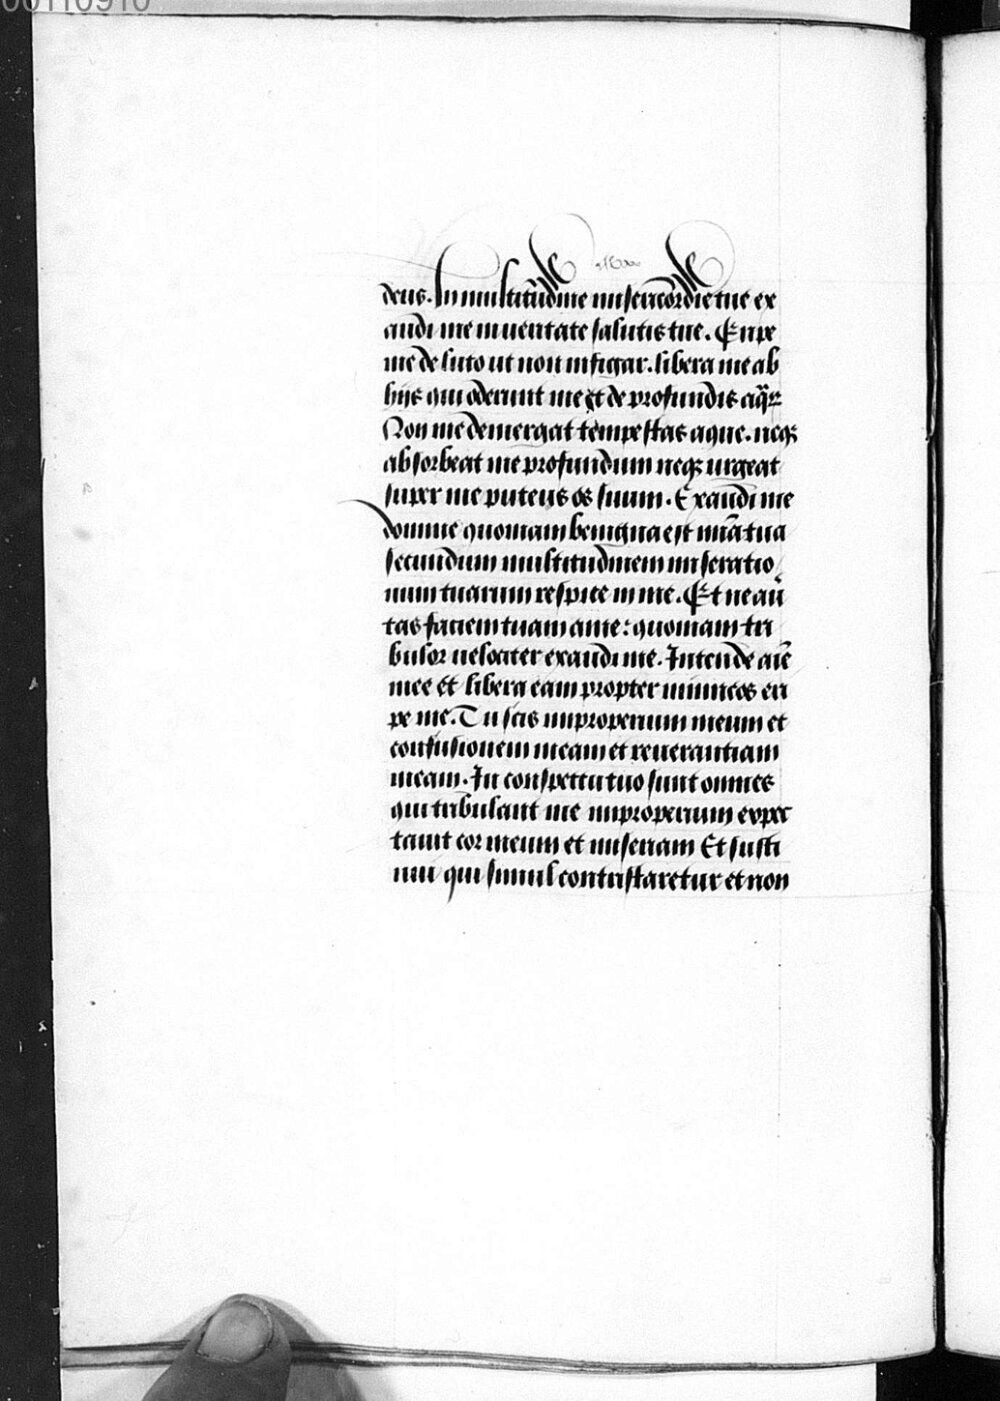 00110910
deus. In multitudine misericordie tue ex
audi me in ueritate salutis tue. Eripe
me de luto ut non infigar. libera me ab
hiis qui oderunt me et de profundis aq̄ꝝ
Non me demergat tempestas aque. neqꝫ
absorbeat me profundum neqꝫ urgeat
super me puteus os suum. Exaudi me
domine quoniam benigna est mīa tua
secundum multitudinem miseratio
num tuarum respice in me. Et ne aū
tas faciem tuam a me: quoniam tri
bulor uelociter exaudi me. Intende aīe
mee et libera eam propter inimicos eri
pe me. Tu scis improperium meum et
confusionem meam et reuerantiam
meam. In conspectu tuo sunt omnes
qui tribulant me improperium expec
tauit cor meum et miseriam Et susti
nui qui simul contristaretur et non